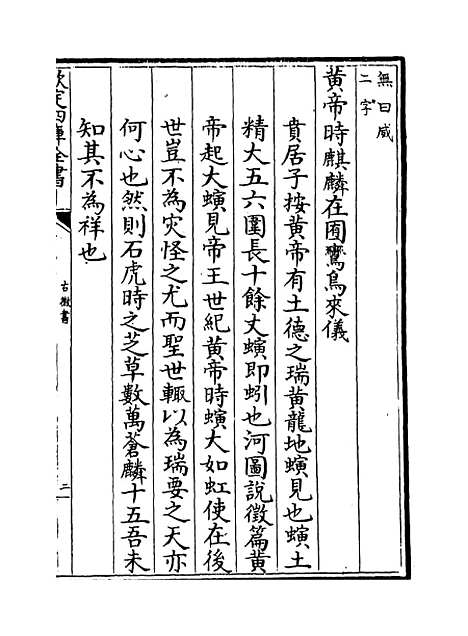 無曰咸
二字
黄帝時麒麟在囿鸞鳥來儀
賁居子按黄帝有土德之瑞黄龍地螾見也螾土
精大五六圍長十餘丈螾即蚓也河圖說徵篇黄
帝起大螾見帝王世紀黄帝時螾大如虹使在後
世豈不為灾怪之尤而聖世輙以為瑞要之天亦
何心也然則石虎時之芝草數萬蒼麟十五吾未
知其不為祥也
欽定四庫全書
古微書
二